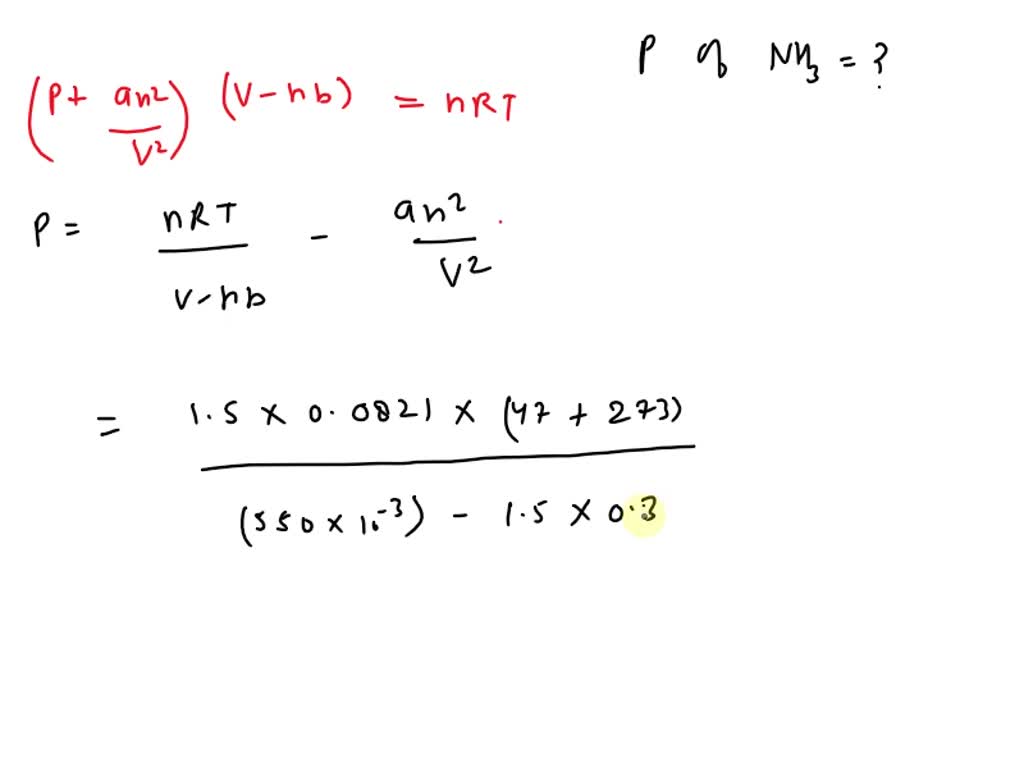 P of NH3 = ?
(P + an²/V²) (V - nb) = nRT
P = nRT/V-nb - an²/V²
= 1.5 × 0.0821 × (47 + 273)
(550 × 10⁻³) - 1.5 × 0.3